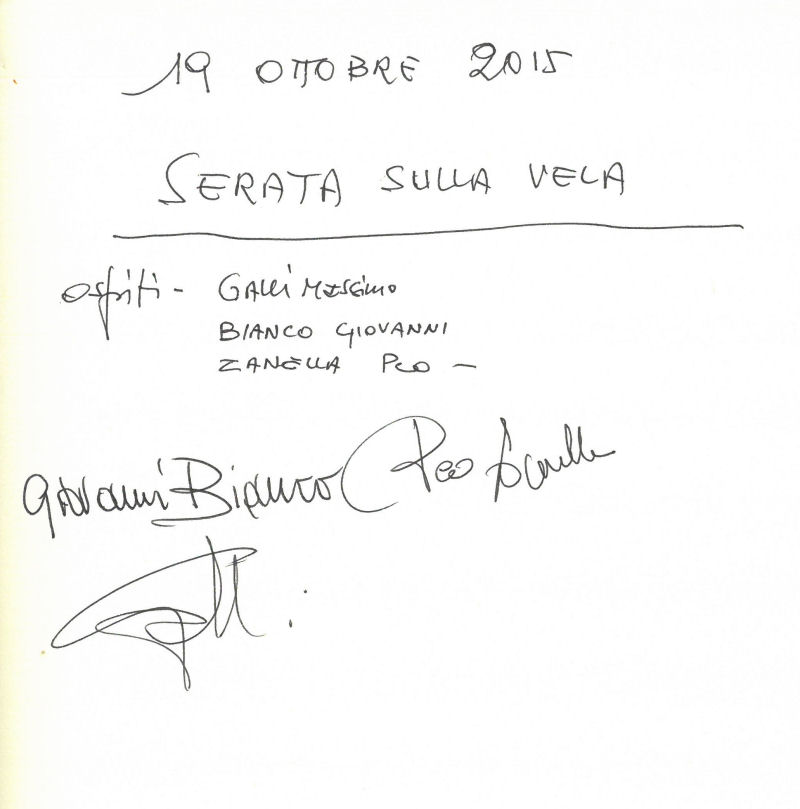 19 OTTOBRE 2015
SERATA SULLA VELA
ospiti - GALLI MASSIMO
BIANCO GIOVANNI
ZANELLA PEO -
Giovanni Bianco Peo Zanella